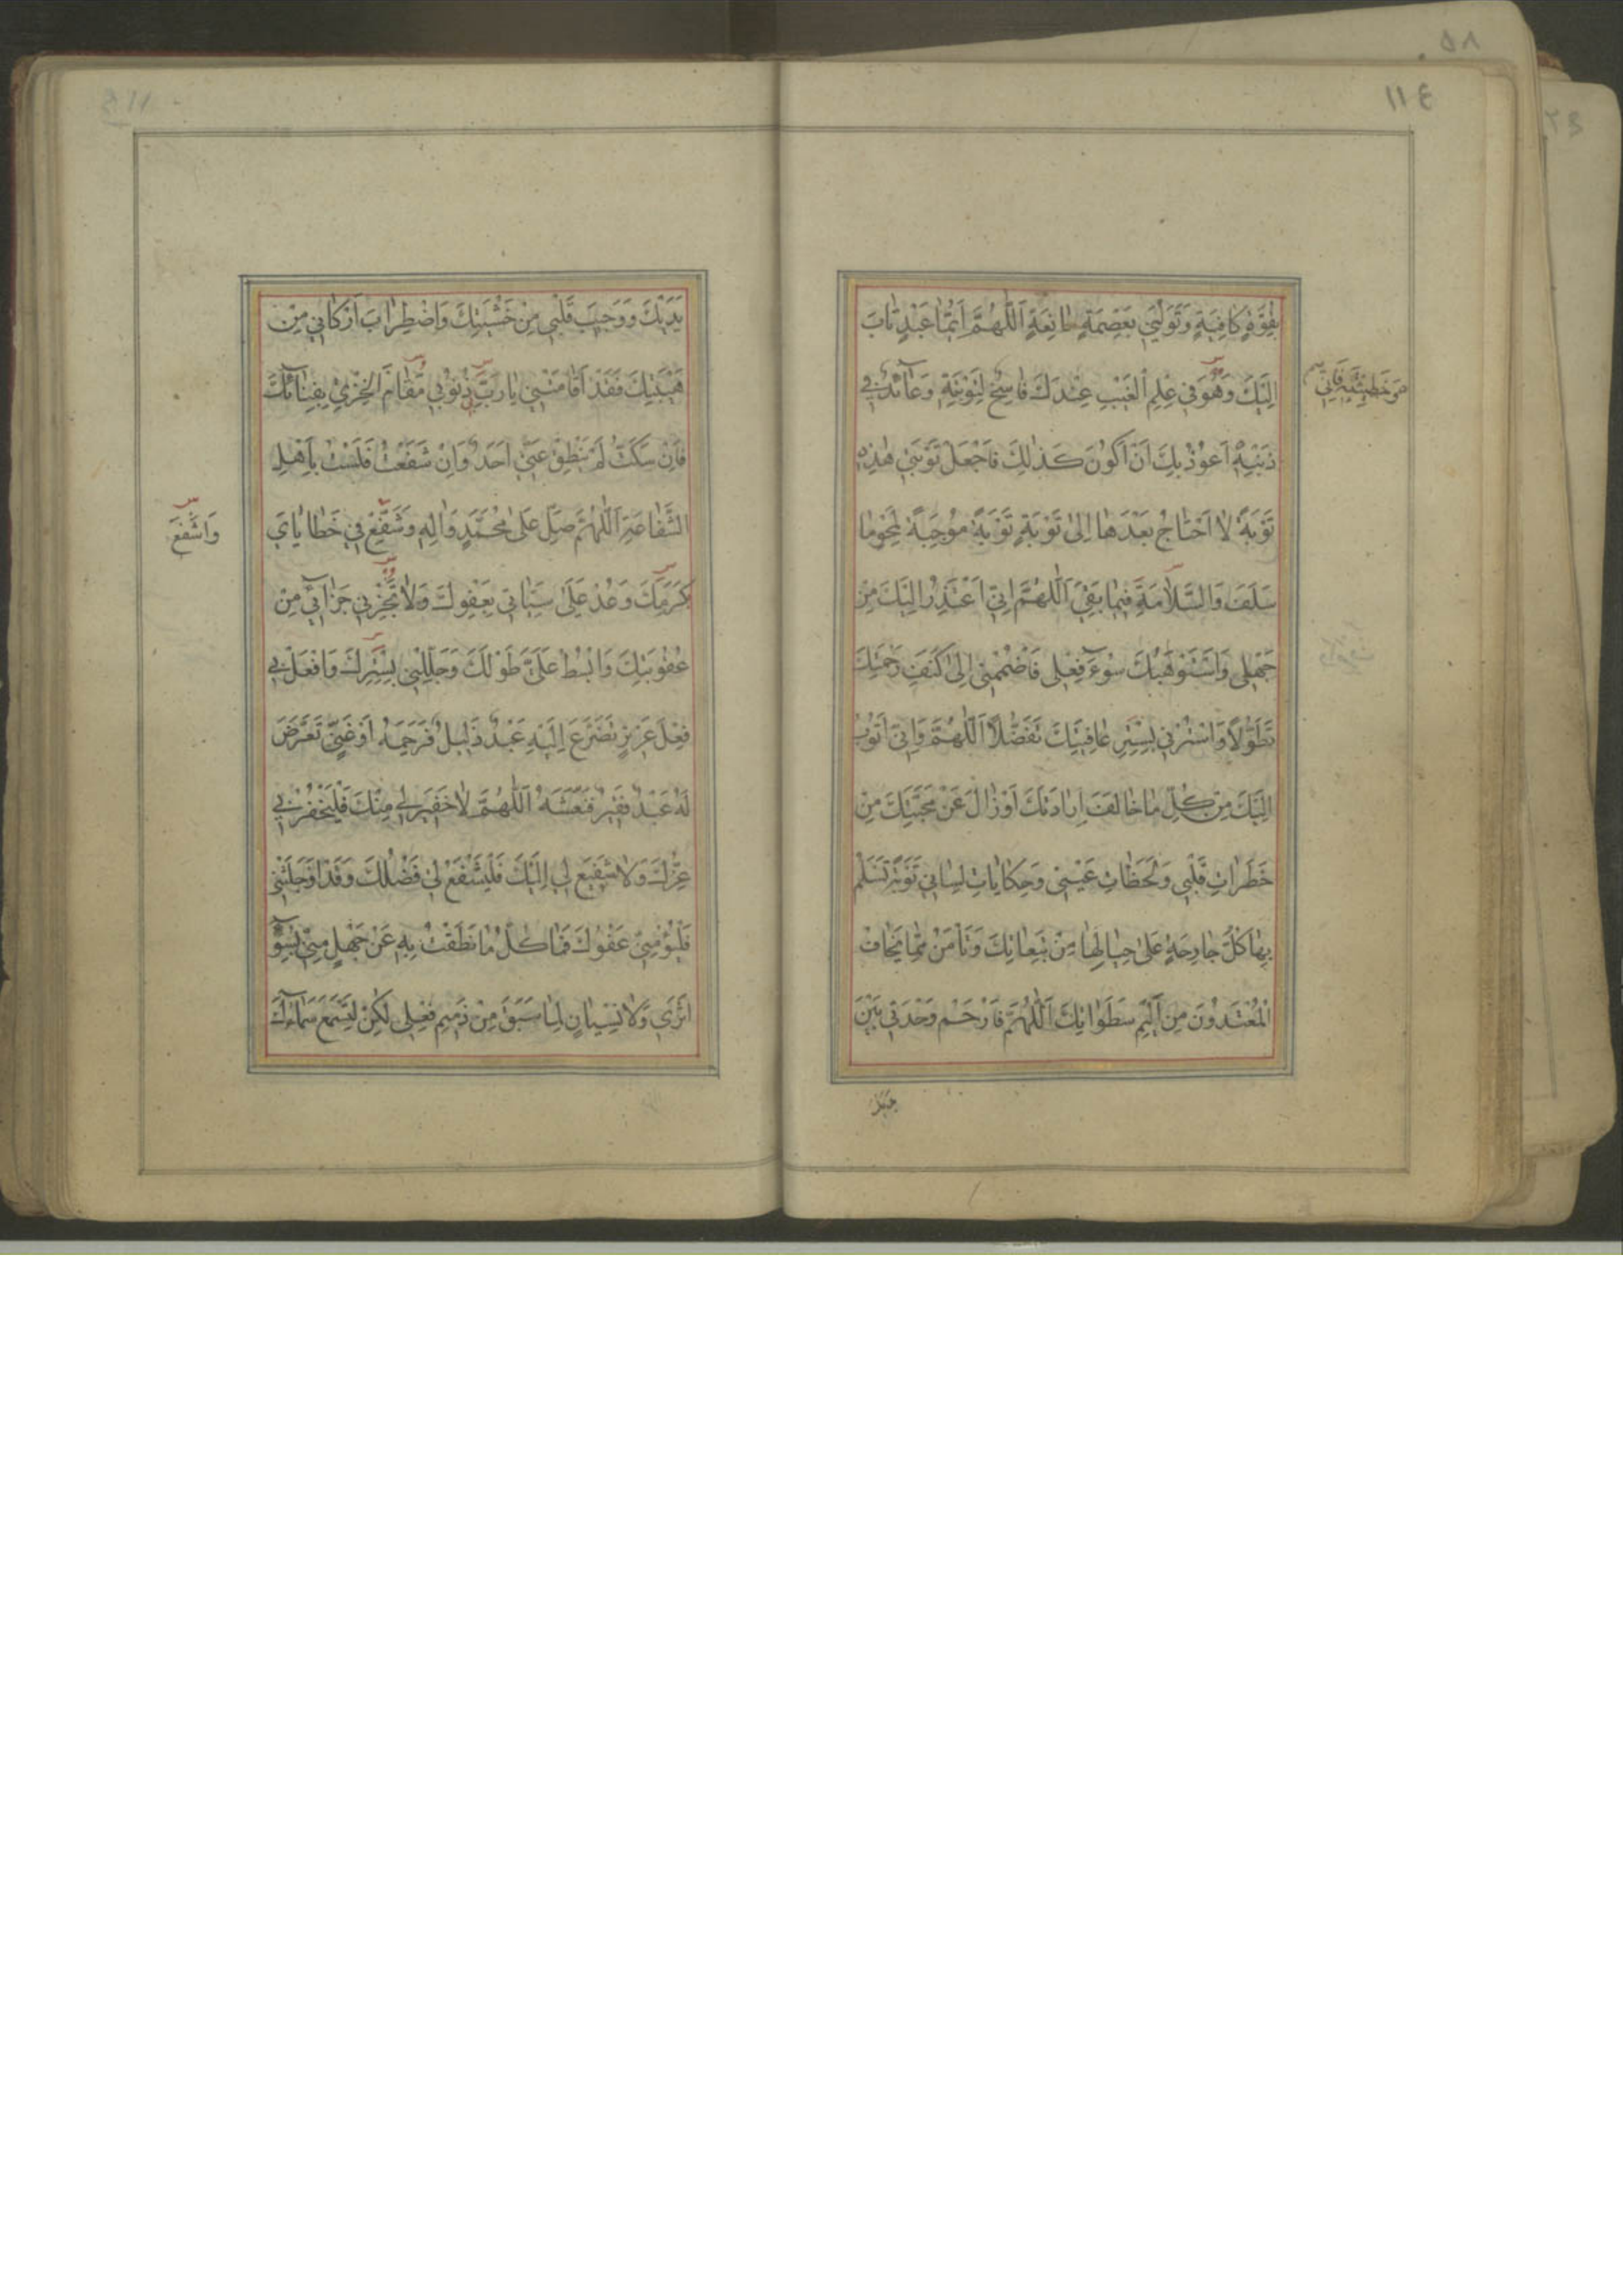 ١١٤
بِقُوَّةٍ كافِيَةٍ وَتَوَلَّني بِعِصْمَةٍ مانِعَةٍ اَللّٰهُمَّ اَيُّما عَبْدٍ تابَ
اِلَيْكَ وَهُوَ في عِلْمِ الْغَيْبِ عِنْدَكَ فاسِخٌ لِتَوْبَتِهِ وَعآئِدٌ في
ذَنْبِهِ اَعُوذُ بِكَ اَنْ اَكُونَ كَذٰلِكَ فَاجْعَلْ تَوْبَتي هٰذِهِ
تَوْبَةً لا اَحْتاجُ بَعْدَها اِلىٰ تَوْبَةٍ تَوْبَةً مُوجِبَةً لِمَحْوِ ما
سَلَفَ وَالسَّلامَةِ فيما بَقِيَ اَللّٰهُمَّ اِنّي اَعْتَذِرُ اِلَيْكَ مِنْ
جَهْلي وَاَسْتَوْهِبُكَ سُوءَ فِعْلي فَاضْمُمْني اِلىٰ كَنَفِ رَحْمَتِكَ
تَطَوُّلاً وَاسْتُرْني بِسِتْرِ عافِيَتِكَ تَفَضُّلاً اَللّٰهُمَّ وَاِنّي اَتُوبُ
اِلَيْكَ مِنْ كُلِّ ما خالَفَ اِرادَتَكَ اَوْ زالَ عَنْ مَحَبَّتِكَ مِنْ
خَطَراتِ قَلْبي وَلَحَظاتِ عَيْني وَحِكاياتِ لِساني تَوْبَةً تَسْلَمُ
بِها كُلُّ جارِحَةٍ عَلىٰ حِيالِها مِنْ تَبِعاتِكَ وَتَأْمَنُ مِمّا يَخافُ
الْمُعْتَدُونَ مِنْ اَليمِ سَطَواتِكَ اَللّٰهُمَّ فَارْحَمْ وَحْدَتي بَيْنَ
يَدَيْكَ وَوَجيبَ قَلْبي مِنْ خَشْيَتِكَ وَاضْطِرابَ اَرْكاني مِنْ
هَيْبَتِكَ فَقَدْ اَقامَتْني يا رَبِّ ذُنُوبي مَقامَ الْخِزْيِ بِفِنآئِكَ
فَاِنْ سَكَتُّ لَمْ يَنْطِقْ عَنّي اَحَدٌ وَاِنْ شَفَعْتُ فَلَسْتُ بِاَهْلِ
الشَّفاعَةِ اَللّٰهُمَّ صَلِّ عَلىٰ مُحَمَّدٍ وَالِهِ وَشَفِّعْ في خَطايايَ
كَرَمَكَ وَعُدْ عَلىٰ سَيِّئاتي بِعَفْوِكَ وَلا تَجْزِني جَزآئي مِنْ
عُقُوبَتِكَ وَابْسُطْ عَلَيَّ طَوْلَكَ وَجَلِّلْني بِسِتْرِكَ وَافْعَلْ بي
فِعْلَ عَزيزٍ تَضَرَّعَ اِلَيْهِ عَبْدٌ ذَليلٌ فَرَحِمَهُ اَوْ غَنِيٍّ تَعَرَّضَ
لَهُ عَبْدٌ فَقيرٌ فَنَعَشَهُ اَللّٰهُمَّ لا خَفيرَ لي مِنْكَ فَلْيَخْفُرْني
عِزُّكَ وَلا شَفيعَ لي اِلَيْكَ فَلْيَشْفَعْ لي فَضْلُكَ وَقَدْ اَوْجَلَتْني
فَلْيُؤْمِنّي عَفْوُكَ فَما كُلُّ ما نَطَقْتُ بِهِ عَنْ جَهْلٍ مِنّي بِسُوٓءِ
اَثَري وَلا نِسْيانٍ لِما سَبَقَ مِنْ ذَميمِ فِعْلي لٰكِنْ لِتَسْمَعَ سَمآؤُكَ
وَاشْفَعْ